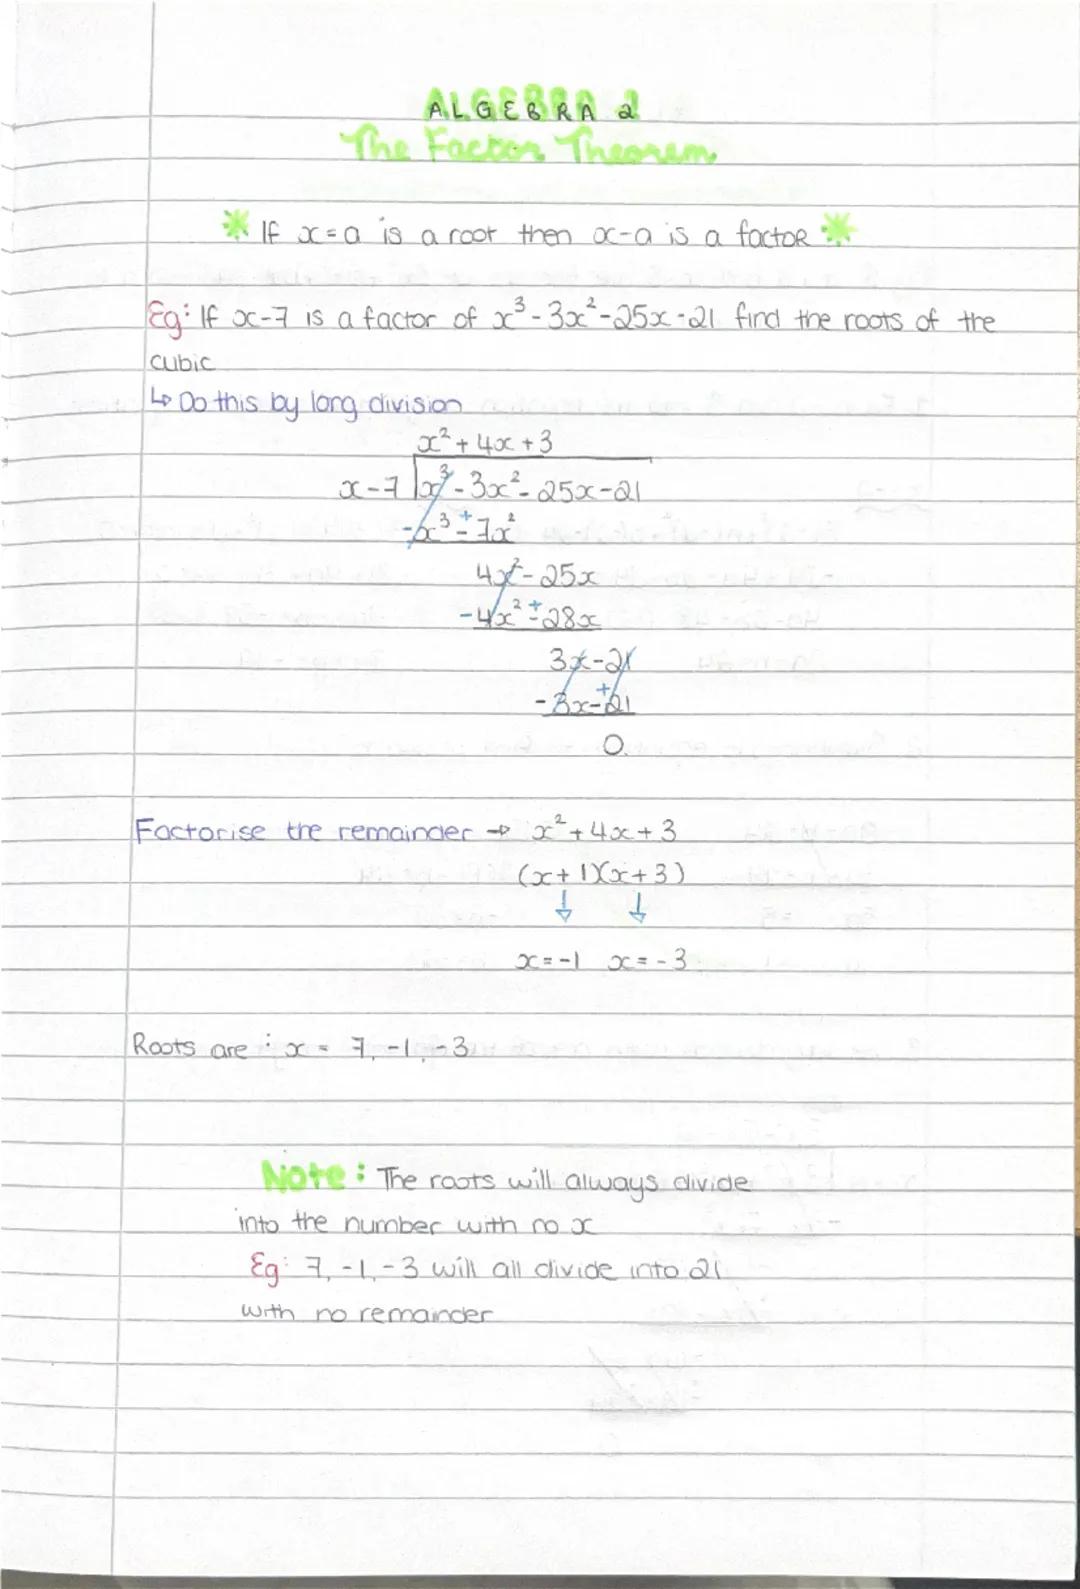 ALGEBRA 2
The Factor Theorem
* If x=a is a root then x-a is a factor *
Eg: If x-7 is a factor of x³-3x²-25x-21 find the roots of the
cubic
↳ Do this by long division
x²+4x+3
x-7 |x³-3x²-25x-21
-x³-+7x²
4x²-25x
-4x²-+28x
3x-21
-3x-+21
0.
Factorise the remainder → x²+4x+3
(x+1)(x+3)
↓ ↓
x=-1 x=-3
Roots are : x = 7, -1, -3
Note: The roots will always divide
into the number with no x
Eg: 7, -1, -3 will all divide into 21
with no remainder